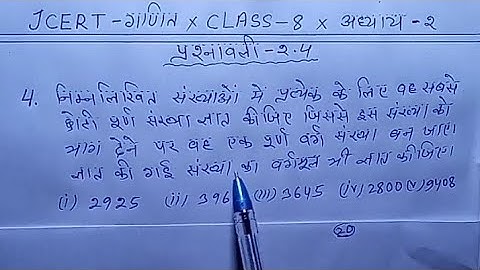 JCERT-गणित × CLASS-8 × अध्याय-२
प्रश्नावली-२.4
4. निम्नलिखित संख्याओं में प्रत्येक के लिए वह सबसे
छोटी पूर्ण संख्या ज्ञात कीजिए जिससे इस संख्या को
भाग देने पर वह एक पूर्ण वर्ग संख्या बन जाए।
ज्ञात की गई संख्या का वर्गमूल भी ज्ञात कीजिए।
(i) 2925 (ii) 396 (iii) 3645 (iv) 2800 (v) 9408
20